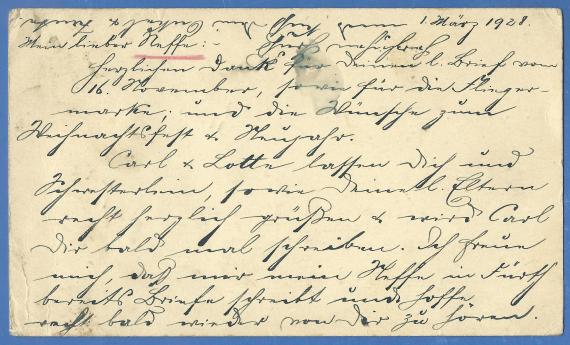 1. März 1928.
Mein lieber Neffe: -
Herzlichen Dank für Deinen l. Brief vom
16. November, sowie für die Flieger-
marke; und die Wünsche zum
Weihnachtsfest & Neujahr.
Carl & Lotte lassen Dich und
Schwesterlein, sowie Deine l. Eltern
recht herzlich grüßen & wird Carl
Dir bald mal schreiben. Ich freue
mich, daß mir mein Neffe in Fürth
bereits Briefe schreibt und hoffe
recht bald wieder von Dir zu hören.